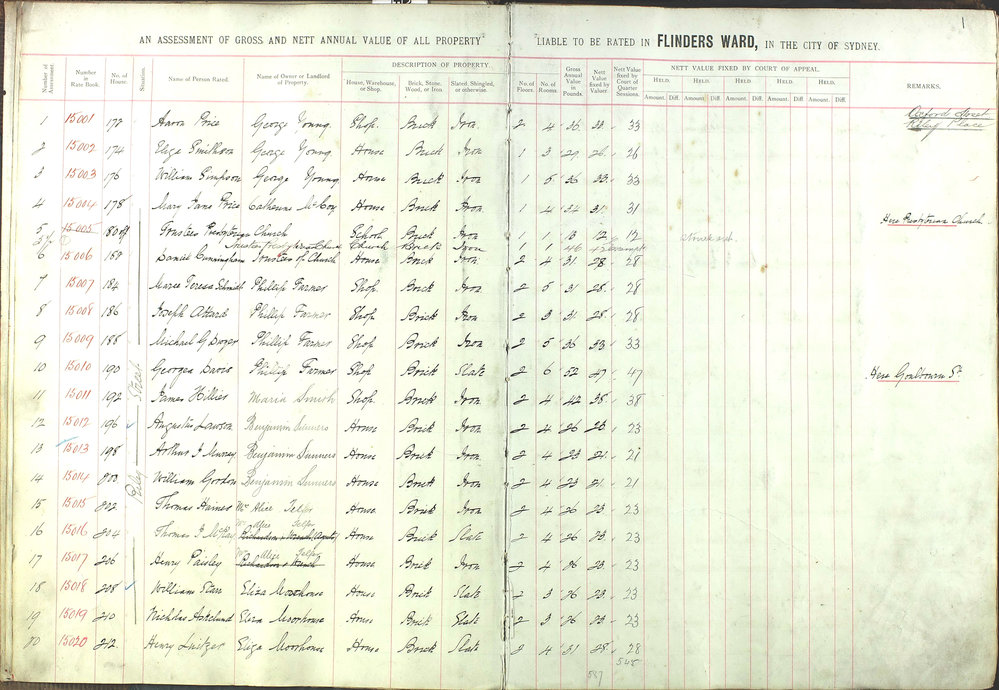 1
AN ASSESSMENT OF GROSS AND NETT ANNUAL VALUE OF ALL PROPERTY LIABLE TO BE RATED IN FLINDERS WARD, IN THE CITY OF SYDNEY.
DESCRIPTION OF PROPERTY.
NETT VALUE FIXED BY COURT OF APPEAL.
Number of Assessment
Number in Rate Book.
No. of House.
Situation.
Name of Person Rated.
Name of Owner or Landlord of Property.
House, Warehouse, or Shop.
Brick, Stone, Wood, or Iron
Slated, Shingled, or otherwise.
No. of Floors.
No. of Rooms.
Gross Annual Value in Pounds.
Nett Value fixed by Valuer.
Nett Value fixed by Court of Quarter Sessions.
HELD. HELD. HELD. HELD. HELD.
Amount. Diff. Amount. Diff. Amount. Diff. Amount. Diff. Amount. Diff.
REMARKS.
Oxford Street
Riley Place
Riley Street
1 15001 172 Aaron Price George Young Shop Brick Iron 2 4 36 33 33
2 15002 174 Eliza Smithson George Young House Brick Iron 1 3 29 26 26
3 15003 176 William Simpson George Young House Brick Iron 1 5 36 33 33
4 15004 178 Mary Jane Price Catherine McCoy House Brick Iron 1 4 34 31 31
Here Presbyterian Church
5 15005 180 Trustees Presbyterian Church School Brick Iron 1 1 13 12 12
Trustees Presbyterian Church Church Brick Iron 1 1 exempt struck out
6 15006 182 Daniel Cunningham Trustees of Church House Brick Iron 2 4 31 28 28
7 15007 184 Marie Teresa Schmidt Phillip Farmer Shop Brick Iron 2 5 31 28 28
8 15008 186 Joseph Attard Phillip Farmer Shop Brick Iron 2 3 31 28 28
9 15009 188 Michael G Dwyer Phillip Farmer Shop Brick Iron 2 5 36 33 33
10 15010 190 Georges Davis Phillip Farmer Shop Brick Slate 2 6 52 47 47
Here Goulbourn St
11 15011 192 James Hillier Maria Smith Shop Brick Iron 2 4 42 38 38
12 15012 196 Augustus Lawson Benjamin Sunners House Brick Iron 2 4 26 23 23
13 15013 198 Arthur J Murray Benjamin Sunners House Brick Iron 2 4 23 21 21
14 15014 200 William Gordon Benjamin Sunners House Brick Iron 2 4 23 21 21
15 15015 202 Thomas Haines Mrs Alice Telfer House Brick Iron 2 4 26 23 23
Alice Telfer
16 15016 204 Thomas J McKay Richardson & Wrench House Brick Slate 2 4 26 23 23
Alice Telfer
17 15017 206 Henry Paisley Richardson & Wrench House Brick Iron 2 4 26 23 23
18 15018 208 William Starr Eliza Moorhouse House Brick Slate 2 3 26 23 23
19 15019 210 Nicholas Eliza Moorhouse House Brick Slate 2 3 26 23 23
20 15020 212 Henry Eliza Moorhouse House Brick Slate 2 4 31 28 28
548
587